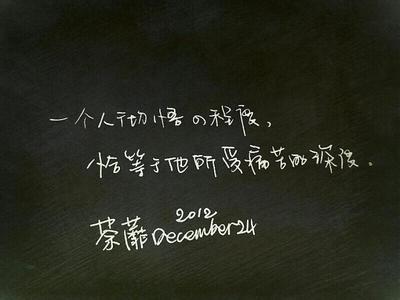 一个人彻悟の程度，
恰等于他所受痛苦的深度。
2012
荼蘼December24